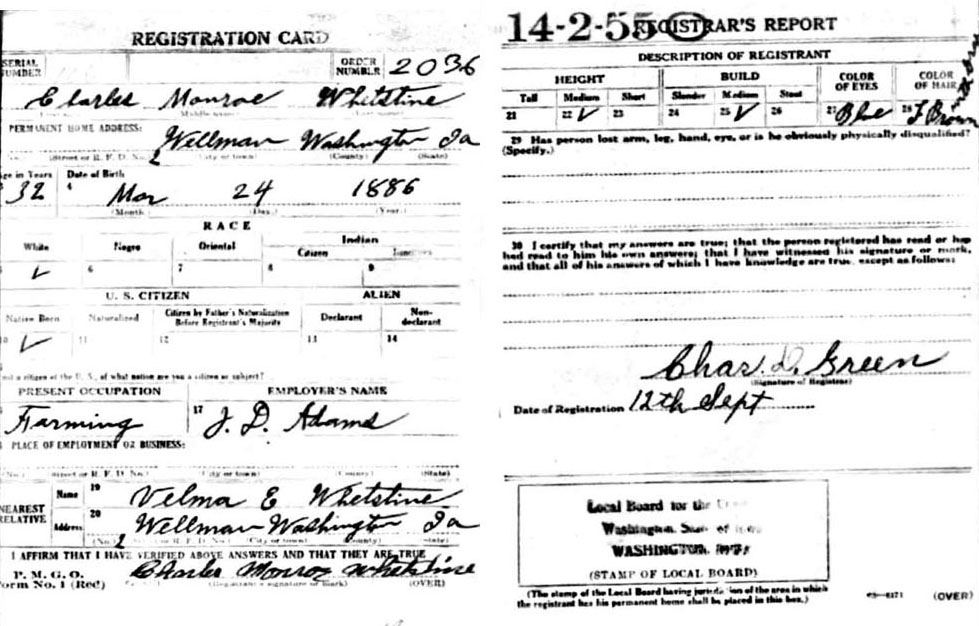 REGISTRATION CARD
SERIAL NUMBER
ORDER NUMBER 2036
Charles Monroe Whetstine
PERMANENT HOME ADDRESS:
2 Wellman Washington Ia
(Street or R. F. D. No.) (City or town) (County) (State)
Age in Years Date of Birth
32 4 Mar 24 1886
(Month.) (Day.) (Year.)
RACE
White Negro Oriental Indian
Citizen
✓ 6 7 8 9
U. S. CITIZEN ALIEN
Native Born Naturalized Citizen by Father's Naturalization Before Registrant's Majority Declarant Non-declarant
10 ✓ 11 12 13 14
not a citizen of the U. S., of what nation are you a citizen or subject?
PRESENT OCCUPATION EMPLOYER'S NAME
Farming 17 J. D. Adams
PLACE OF EMPLOYMENT OR BUSINESS:
(No.) (Street or R. F. D. No.) (City or town) (County) (State)
NEAREST RELATIVE
Name 19 Velma E Whetstine
Address 20 Wellman Washington Ia
(No.) 2 (Street or R. F. D. No.) (City or town) (County) (State)
I AFFIRM THAT I HAVE VERIFIED ABOVE ANSWERS AND THAT THEY ARE TRUE
P. M. G. O.
Form No. 1 (Red) Charles Monroe Whetstine
(Registrant's signature or mark) (OVER)
14-2-55 REGISTRAR'S REPORT
DESCRIPTION OF REGISTRANT
HEIGHT BUILD COLOR OF EYES COLOR OF HAIR
Tall Medium Short Slender Medium Stout
21 22 ✓ 23 24 25 ✓ 26 27 Blue 28 Brown
29 Has person lost arm, leg, hand, eye, or is he obviously physically disqualified?
(Specify.)
30 I certify that my answers are true; that the person registered has read or has
had read to him his own answers; that I have witnessed his signature or mark,
and that all of his answers of which I have knowledge are true, except as follows:
Chas. D. Green
(Signature of Registrar)
Date of Registration 12th Sept
Local Board for the
Washington, State of Iowa
WASHINGTON, IOWA
(STAMP OF LOCAL BOARD)
(The stamp of the Local Board having jurisdiction of the area in which
the registrant has his permanent home shall be placed in this box.)
03-6171 (OVER)